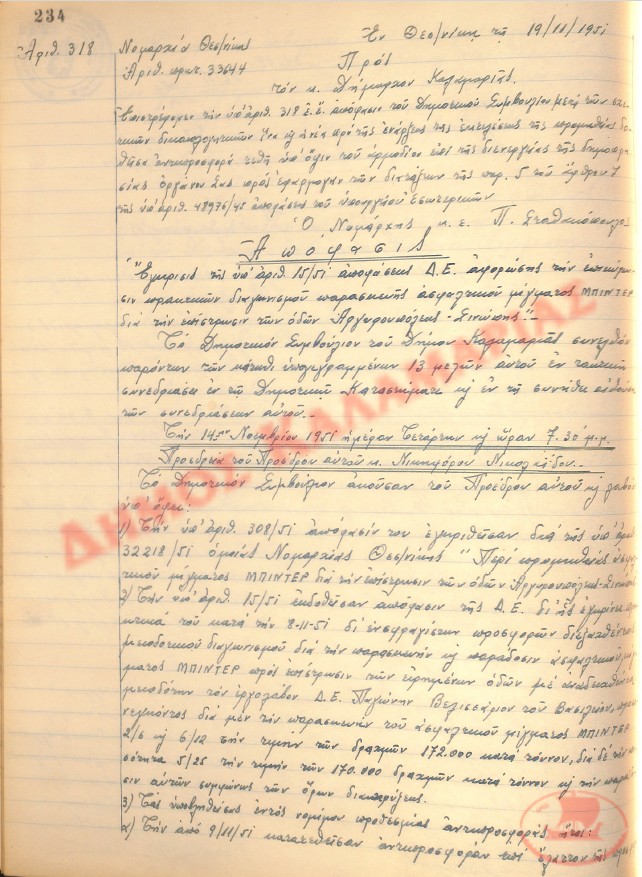 234
Ἐν Θεσ/νίκῃ τῇ 19/11/1951
Ἀριθ. 318
Νομαρχία Θεσ/νίκης
Ἀριθ. πρωτ. 33644
Πρός
τόν κ. Δήμαρχον Καλαμαριᾶς.
Ἐπιστρέφομεν τήν ὑπ' ἀριθ. 318 ἀπόφασιν τοῦ Δημοτικοῦ Συμβουλίου μετά τῶν σχε-
τικῶν δικαιολογητικῶν ἵνα ἡ νέα πρό τῆς ἐνάρξεως τῆς ἐκτελέσεως τῆς προμηθείας
ἀντιπροσφορά τεθῇ ὑπ' ὄψιν τοῦ ἁρμοδίου διά τῆς διενεργείας τῆς δημοπρα-
σίας ὀργάνου σας πρός ἐφαρμογήν τῶν διατάξεων τῆς παρ. 5 τοῦ ἄρθρου 7
τῆς ὑπ' ἀριθ. 48976/ ἀποφάσεως τοῦ ὑπουργείου ἐσωτερικῶν
Ὁ Νομάρχης κ.ε. Π. Σταθακόπουλος
Ἀπόφασις
"Ἔγκρισις τῆς ὑπ' ἀριθ. 15/51 ἀποφάσεως Δ.Ε. ἀφορώσης τήν ἐπικύρω-
σιν πρακτικῶν διαγωνισμοῦ παρασκευῆς ἀσφαλτικοῦ μίγματος ΜΠΙΝΤΕΡ
διά τήν ἐπίστρωσιν τῶν ὁδῶν Ἀργυρουπόλεως - Σινώπης"._
Τό Δημοτικόν Συμβούλιον τοῦ Δήμου Καλαμαριᾶς συνελθόν
παρόντων τῶν κάτωθι ὑπογεγραμμένων 13 μελῶν αὐτοῦ ἐν τακτικῇ
συνεδριάσει ἐν τῷ Δημοτικῷ Καταστήματι κ ἐν τῇ συνήθει αἰθούσῃ
τῶν συνεδριάσεων αὐτοῦ._
Τήν 14ην Νοεμβρίου 1951 ἡμέραν Τετάρτην κ ὥραν 7.30' μ.μ.
Προεδρείᾳ τοῦ Προέδρου αὐτοῦ κ. Νικηφόρου Νικολαΐδου._
Τό Δημοτικόν Συμβούλιον ἀκοῦσαν τοῦ Προέδρου αὐτοῦ κ λαβόν
ὑπ' ὄψει:
1) Τήν ὑπ' ἀριθ. 308/51 ἀπόφασίν του ἐγκριθεῖσαν διά τῆς ὑπ' ἀριθ.
32218/51 ὁμοίας Νομαρχίας Θεσ/νίκης "Περί προμηθείας ἀσφαλ-
τικοῦ μίγματος ΜΠΙΝΤΕΡ διά τήν ἐπίστρωσιν τῶν ὁδῶν Ἀργυρουπόλεως-Σινώπης
2) Τήν ὑπ' ἀριθ. 15/51 ἐκδοθεῖσαν ἀπόφασιν τῆς Δ.Ε. δι' ἧς ἐγκρίνει
τοῦ κατά τήν 8-11-51 δι' ἐνσφραγίστων προσφορῶν διεξαχθέντος
μειοδοτικοῦ διαγωνισμοῦ διά τήν παρασκευήν κ παράδοσιν ἀσφαλτικοῦ μίγ-
ματος ΜΠΙΝΤΕΡ πρός ἐπίστρωσιν τῶν εἰρημένων ὁδῶν μέ ἀναδειχθέντα
μειοδότην τόν ἐργολάβον Δ.Ε. Παγώνην Βελισσάριον τοῦ Βασιλείου,
διά μέν τήν παρασκευήν τοῦ ἀσφαλτικοῦ μίγματος ΜΠΙΝΤΕΡ
2/6 κ 6/12 τήν τιμήν τῶν δραχμῶν 172.000 κατά τόννον, διά δέ τήν πο-
σότητα 5/25 τήν τιμήν τῶν 170.000 δραχμῶν κατά τόννον κ τήν παράδο-
σιν αὐτῶν συμφώνως τῶν ὅρων διακηρύξεως.
3) Τάς ὑποβληθείσας ἐντός νομίμου προθεσμίας ἀντιπροσφοράς ἤτοι:
α) Τήν ἀπό 9/11/51 κατατεθεῖσαν ἀντιπροσφοράν ἐπί ἔλαττον τῆς
ΔΗΜΟΣ ΚΑΛΑΜΑΡΙΑΣ